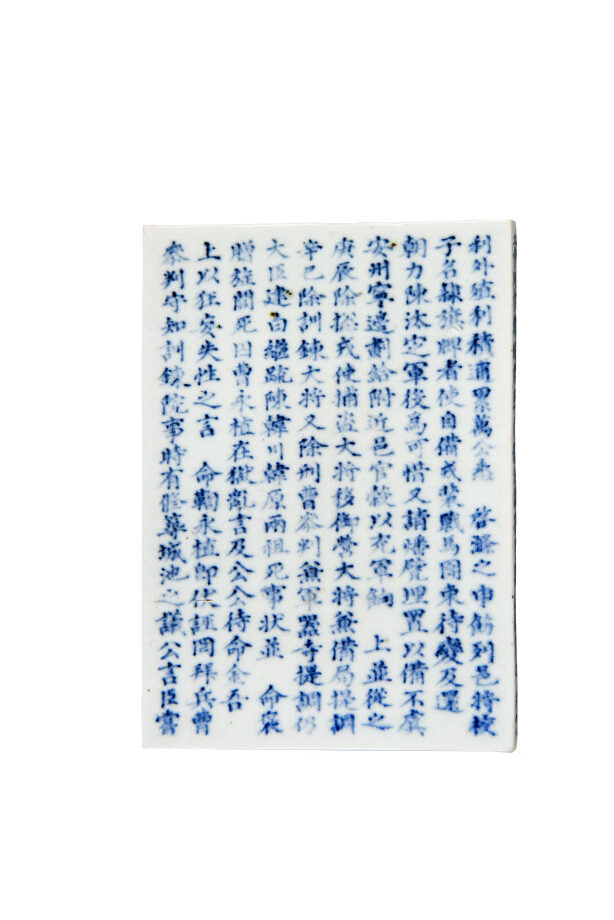 利外殖利積逋累萬公悉 啓蠲之申飭列邑將校
子名隷旗牌者使自備戎裝戰馬團束待變及還
朝力陳汰定軍後爲可惜又請燔甓埋置以備不虞
安州寧邊劃給附近邑官穀以充軍餉 上並從之
庚辰除摠戎使捕盜大將移御營大將兼備局提調
辛巳除訓鍊大將又除刑曹參判兼軍器寺提調仍
大臣建白繼疏陳韓川韓原兩祖死事狀並 命褒
贈旌閭死囚曹永植在獄亂言及公公待命金吾
上以狂妄失性之言 命鞫永植卽伏誣罔拜兵曹
參判守知訓鍊院事時有修葺城池之議公言臣嘗